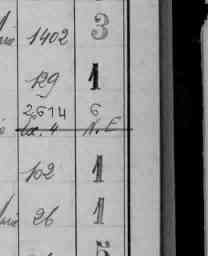 1402 3
129 1
2614 6
bx. 4 N.E
102 1
26 1
5